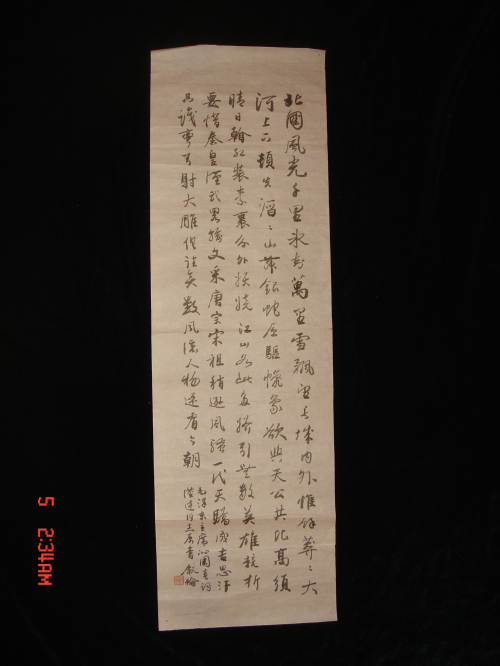 北國風光千里冰封萬里雪飄望長城內外惟餘莽々大
河上下頓失滔々山舞銀蛇原驅蠟象欲與天公共比高須
晴日看紅裝素裹分外妖嬈江山如此多嬌引無數英雄競折
要惜秦皇漢武略輸文采唐宗宋祖稍遜風騷一代天驕成吉思汗
只識彎弓射大雕俱往矣數風流人物還看今朝
毛澤東主席沁園春詞
達同志屬書叙倫
5 2:34AM